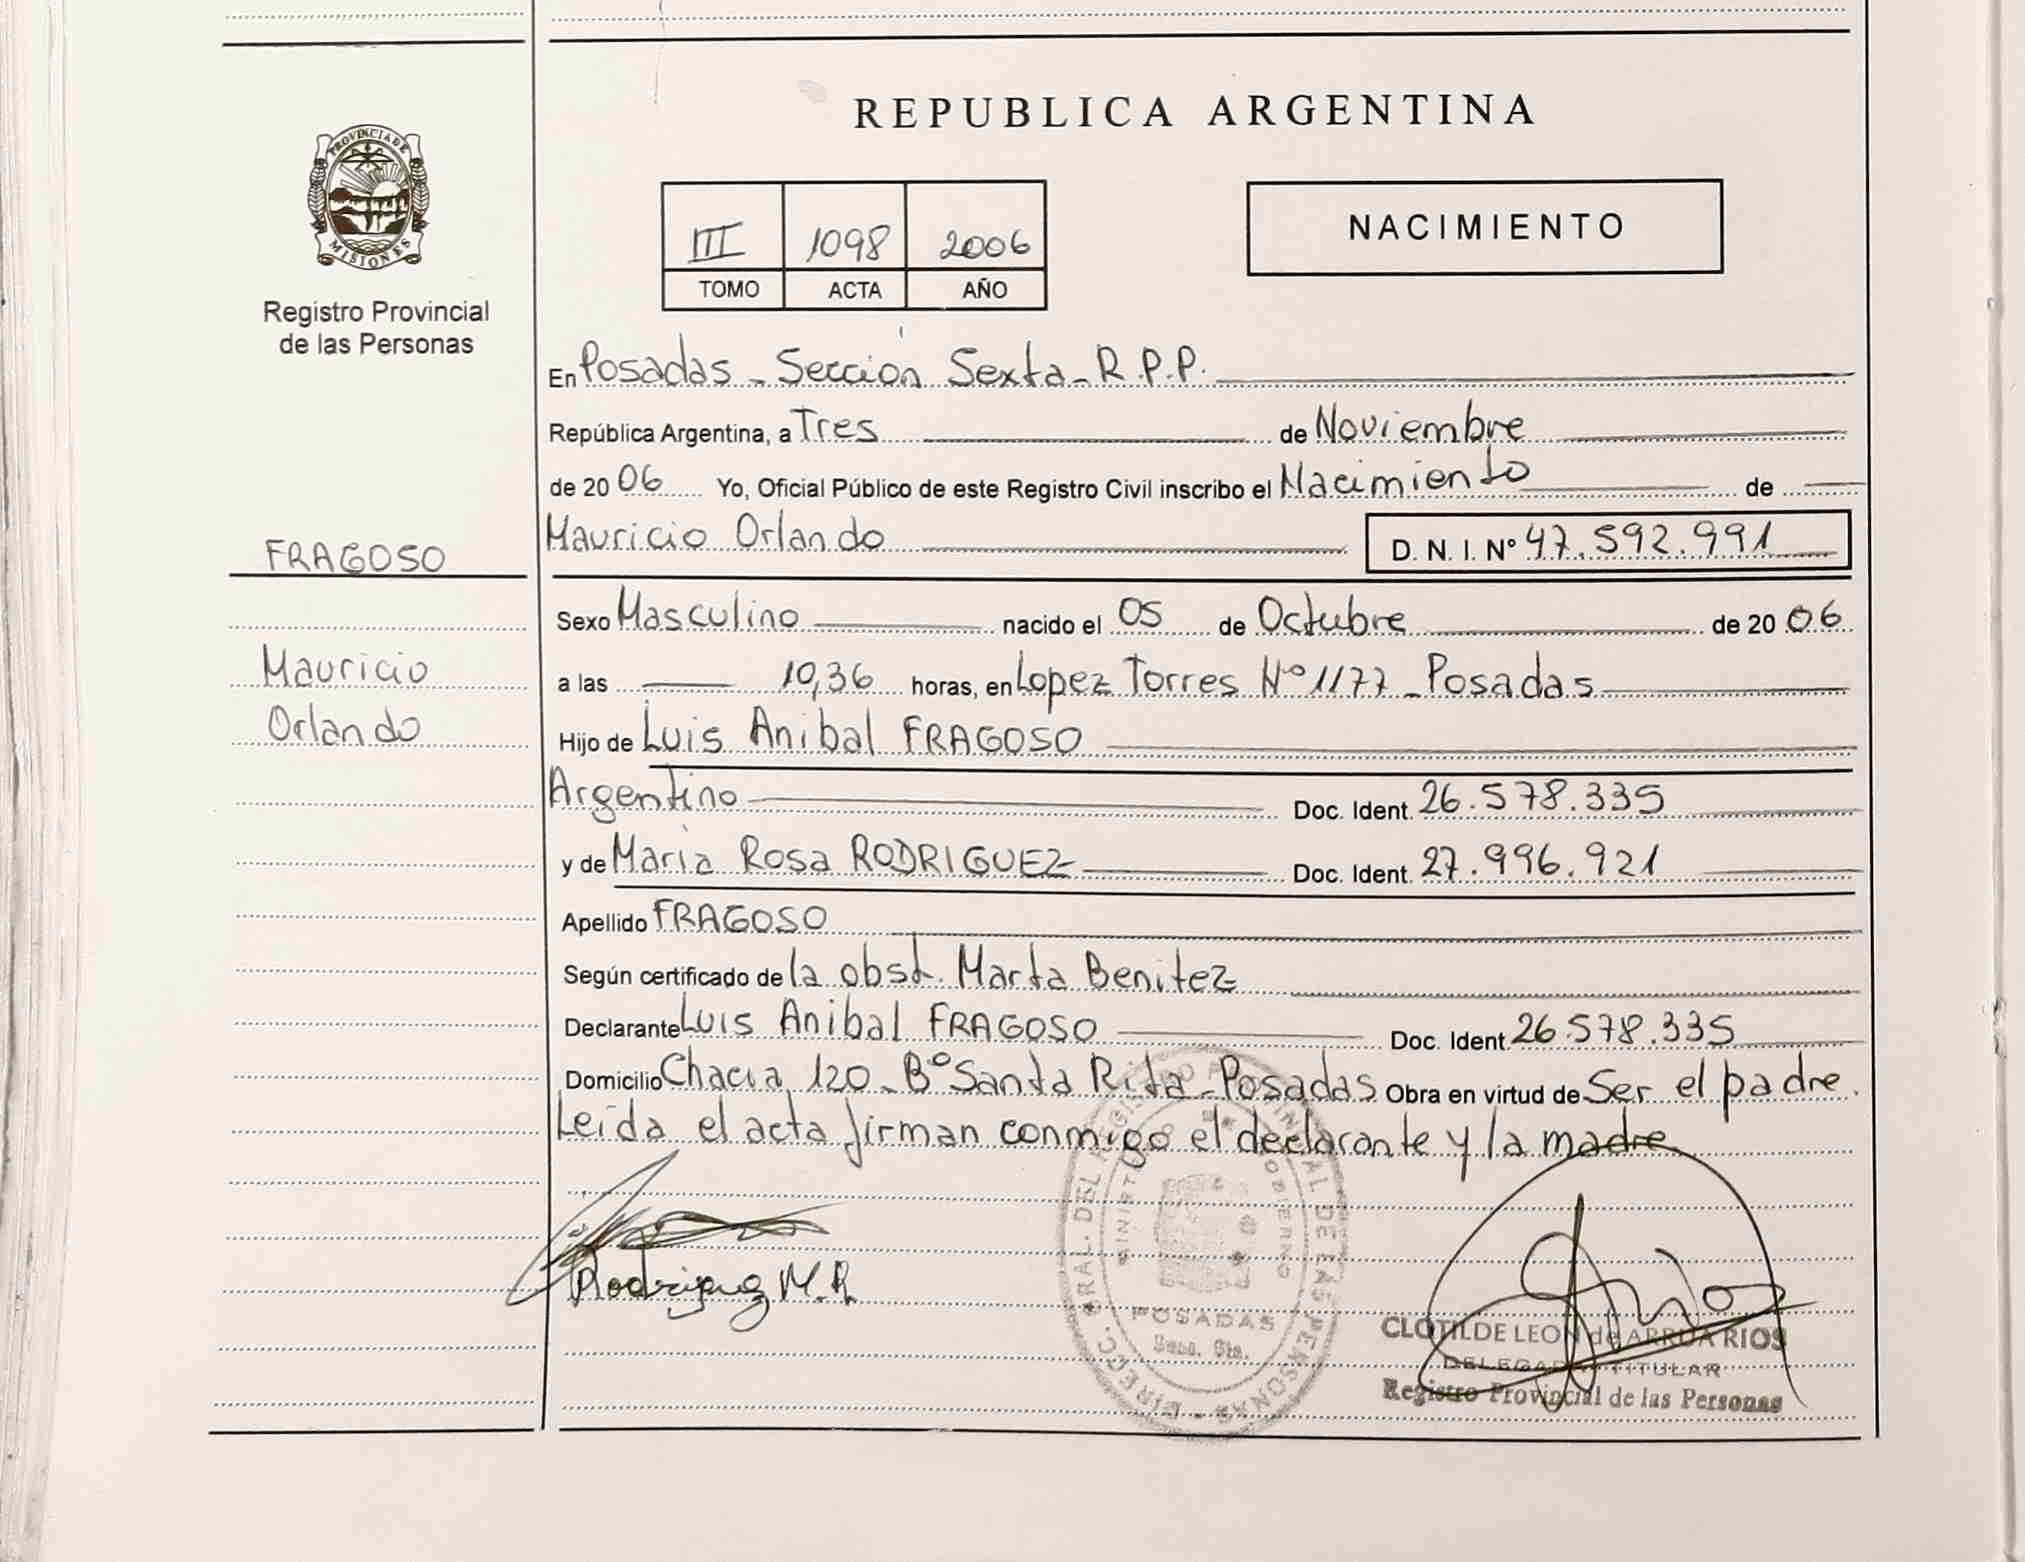 REPUBLICA ARGENTINA
PROVINCIA DE
MISIONES
Registro Provincial
de las Personas
III 1098 2006
TOMO ACTA AÑO
NACIMIENTO
En Posadas - Sección Sexta - R.P.P.
República Argentina, a Tres de Noviembre
de 20 06 Yo, Oficial Público de este Registro Civil inscribo el Nacimiento de
FRAGOSO
Mauricio Orlando D. N. I. Nº 47.592.991
Sexo Masculino nacido el 05 de Octubre de 20 06
Mauricio
a las 10,36 horas, en Lopez Torres Nº 1177 - Posadas
Orlando
Hijo de Luis Anibal FRAGOSO
Argentino Doc. Ident. 26.578.335
y de Maria Rosa RODRIGUEZ Doc. Ident. 27.996.921
Apellido FRAGOSO
Según certificado de la obst. Marta Benitez
Declarante Luis Anibal FRAGOSO Doc. Ident. 26.578.335
Domicilio Chacra 120 - Bº Santa Rita - Posadas Obra en virtud de Ser el padre.
Leída el acta firman conmigo el declarante y la madre
Rodriguez M. R.
DIRECC. GRAL. DEL REGISTRO PROVINCIAL DE LAS PERSONAS
MINISTERIO DE GOBIERNO
POSADAS
Secc. 6ta.
CLOTILDE LEON de ARRUA RIOS
DELEGADA TITULAR
Registro Provincial de las Personas